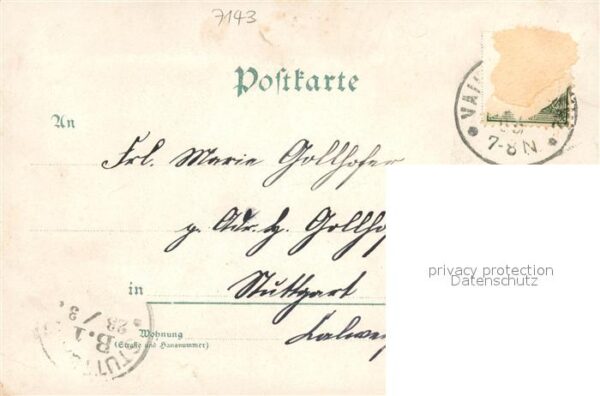 7143
Postkarte
An
Frl. Marie Gollhofer
p. Adr. H. Gollho
in Stuttgart
Wohnung
(Straße und Hausnummer)
VAI
7-8 N
STUTT
B.1
23/3
privacy protection
Datenschutz